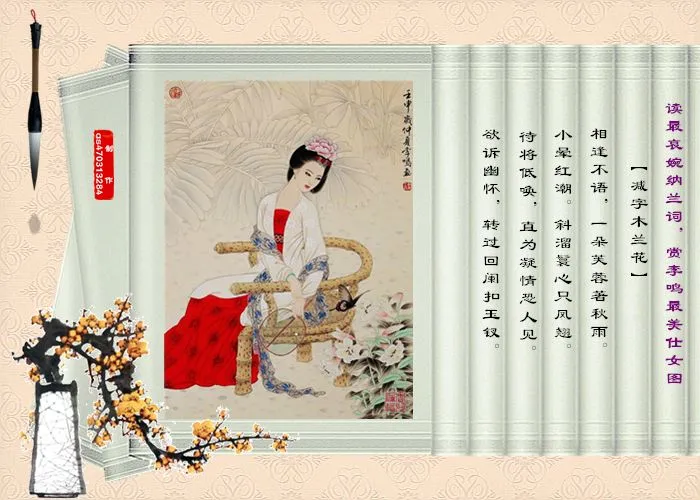 读最哀婉纳兰词，赏李鸣最美仕女图
【减字木兰花】
相逢不语，一朵芙蓉著秋雨。
小晕红潮。斜溜鬟心只凤翘。
待将低唤，直为凝情恐人见。
欲诉幽怀，转过回阑扣玉钗。
壬申岁仲夏李鸣画
qs470313284